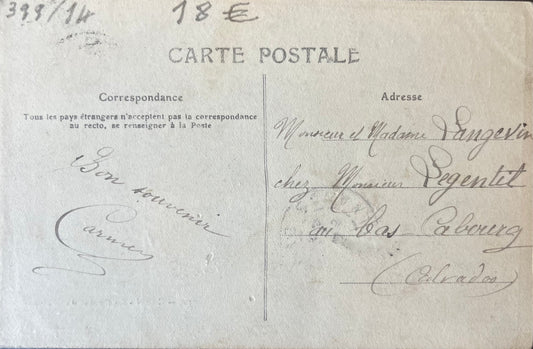 399/14
18 €
CARTE POSTALE
Correspondance
Tous les pays étrangers n'acceptent pas la correspondance
au recto, se renseigner à la Poste
Bon souvenir
Carmen
Adresse
Monsieur et Madame Langevin
chez Monsieur Legentil
au Bas-Cabourg
(Calvados)